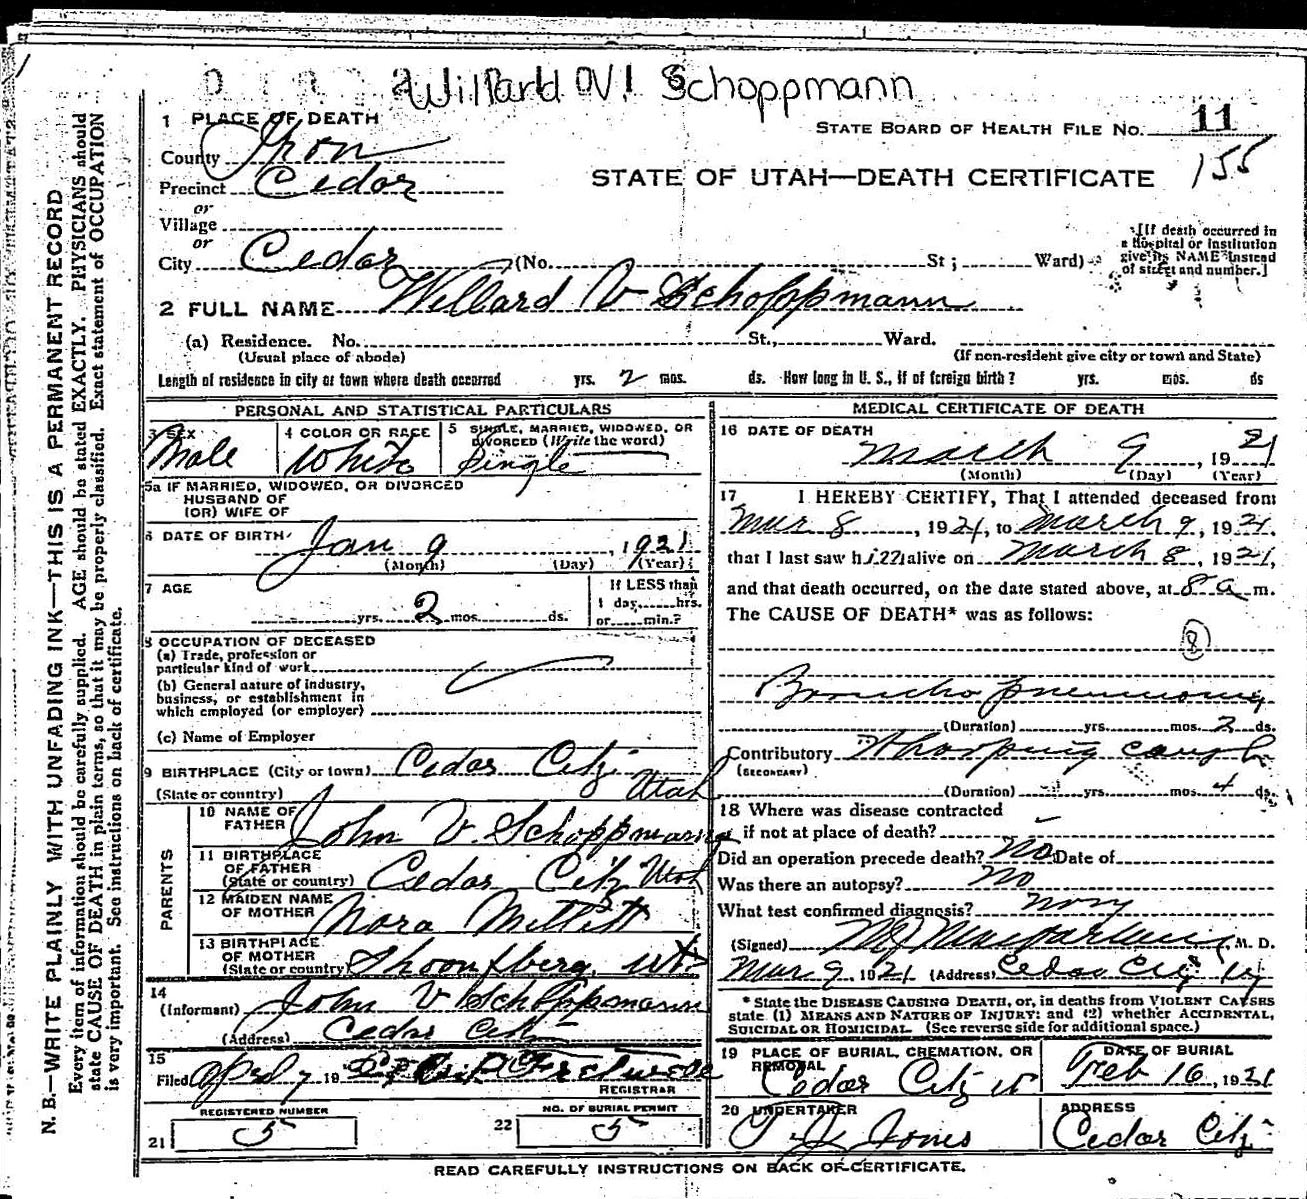 Willard V. Schoppmann
1 PLACE OF DEATH
STATE BOARD OF HEALTH FILE NO. 11
County Iron
155
Precinct Cedar
STATE OF UTAH—DEATH CERTIFICATE
or
Village
or
City Cedar (No. St; Ward)
[If death occurred in
a Hospital or Institution
give its NAME instead
of street and number.]
2 FULL NAME Willard V Schoppmann
(a) Residence. No. St., Ward.
(Usual place of abode) (If non-resident give city or town and State)
Length of residence in city or town where death occurred yrs. 2 mos. ds. How long in U. S., if of foreign birth? yrs. mos. ds
PERSONAL AND STATISTICAL PARTICULARS
3 SEX
Male
4 COLOR OR RACE
White
5 SINGLE, MARRIED, WIDOWED, OR
DIVORCED (Write the word)
Single
5a IF MARRIED, WIDOWED, OR DIVORCED
HUSBAND OF
(OR) WIFE OF
6 DATE OF BIRTH
Jan 9, 1921
(Month) (Day) (Year)
7 AGE
yrs. 2 mos. ds.
If LESS than
1 day, hrs.
or min.?
8 OCCUPATION OF DECEASED
(a) Trade, profession or
particular kind of work
(b) General nature of industry,
business, or establishment in
which employed (or employer)
(c) Name of Employer
9 BIRTHPLACE (City or town) Cedar City
(State or country) Utah
PARENTS
10 NAME OF
FATHER John V. Schoppmann
11 BIRTHPLACE
OF FATHER
(State or country) Cedar City Utah
12 MAIDEN NAME
OF MOTHER Nora Millett
13 BIRTHPLACE
OF MOTHER
(State or country)
14
(Informant) John V Schoppmann
(Address) Cedar City
15
Filed April 7 19
REGISTRAR
REGISTERED NUMBER
21 5
NO. OF BURIAL PERMIT
22 5
MEDICAL CERTIFICATE OF DEATH
16 DATE OF DEATH
March 9, 1921
(Month) (Day) (Year)
17 I HEREBY CERTIFY, That I attended deceased from
Mar 8, 1921, to March 9, 1921
that I last saw him alive on March 8, 1921,
and that death occurred, on the date stated above, at 8 a m.
The CAUSE OF DEATH* was as follows:
8
Broncho pneumonia
(Duration) yrs. mos. 2 ds.
Contributory Whooping cough
(SECONDARY)
(Duration) yrs. mos. 4 ds.
18 Where was disease contracted
if not at place of death?
Did an operation precede death? No Date of
Was there an autopsy? No
What test confirmed diagnosis?
(Signed) M. D.
Mar 9, 1921 (Address) Cedar City
* State the DISEASE CAUSING DEATH, or, in deaths from VIOLENT CAUSES
state (1) MEANS AND NATURE OF INJURY: and (2) whether ACCIDENTAL,
SUICIDAL OR HOMICIDAL. (See reverse side for additional space.)
19 PLACE OF BURIAL, CREMATION, OR
REMOVAL
Cedar City
DATE OF BURIAL
Feb 16, 1921
20 UNDERTAKER
T. J. Jones
ADDRESS
Cedar City
READ CAREFULLY INSTRUCTIONS ON BACK OF CERTIFICATE.
N. B.—WRITE PLAINLY WITH UNFADING INK—THIS IS A PERMANENT RECORD
Every item of information should be carefully supplied. AGE should be stated EXACTLY. PHYSICIANS should
state CAUSE OF DEATH in plain terms, so that it may be properly classified. Exact statement of OCCUPATION
is very important. See instructions on back of certificate.